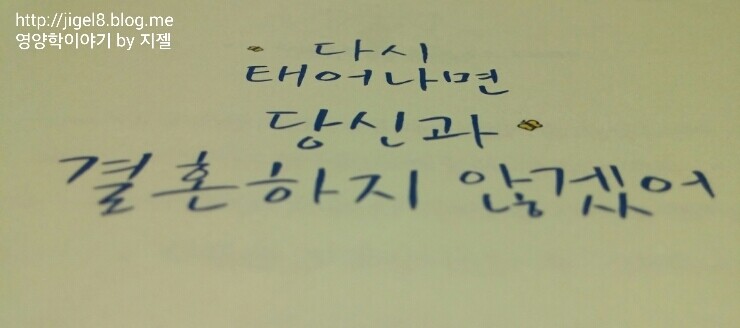 http://jigel8.blog.me
영양학이야기 by 지젤
다시
태어나면
당신과
결혼하지 않겠어